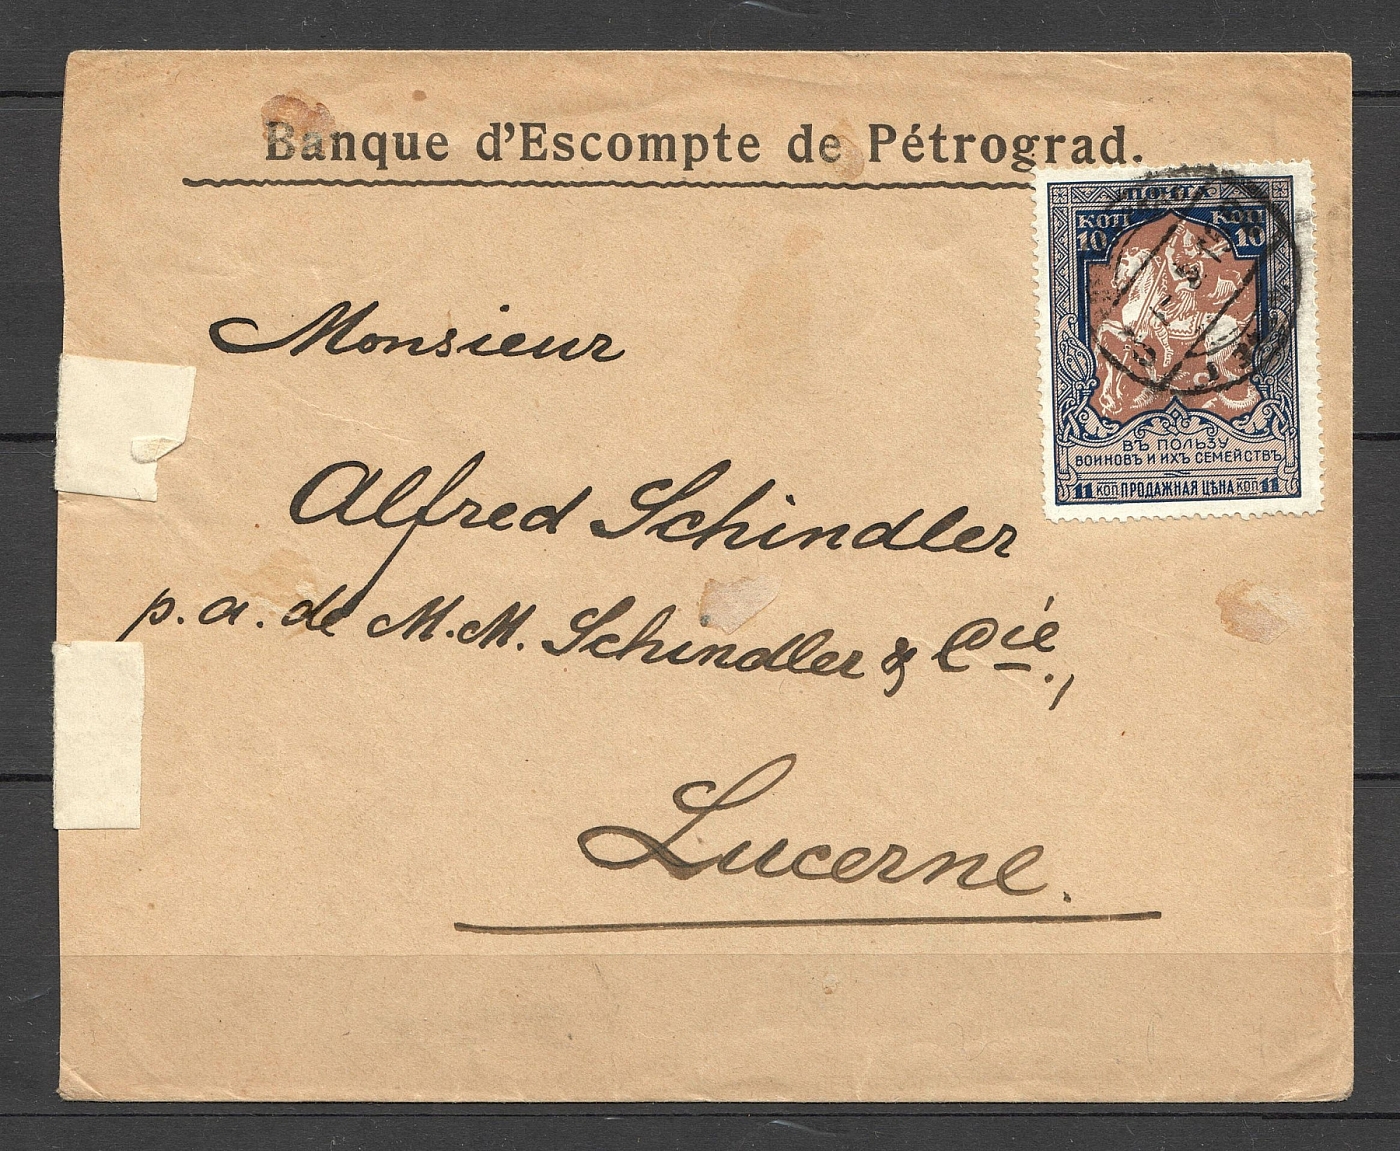 Banque d'Escompte de Pétrograd.
ПОЧТА
КОП КОП
10 10
Monsieur
ВЪ ПОЛЬЗУ
ВОИНОВЪ И ИХЪ СЕМЕЙСТВЪ
11 КОП ПРОДАЖНАЯ ЦѢНА КОП 11
Alfred Schindler
p. a. de M. M. Schindler & Cie.,
Lucerne.